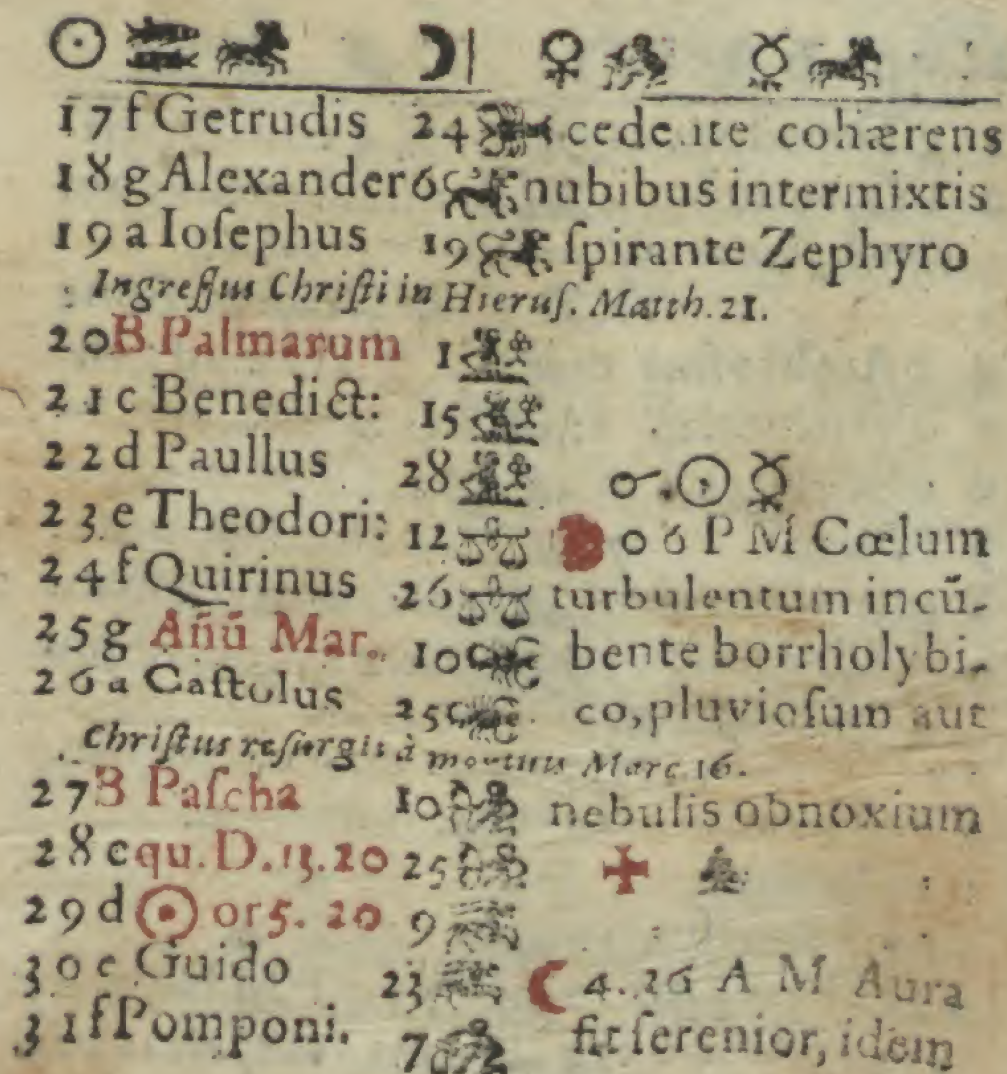 ☉ ♓ ♈ ☽ ♀ ♐ ☿ ♈
17 f Getrudis 24 ♋ cohærens
18 g Alexander 6 ♌ nubibus intermixtis
19 a Ioſephus 19 ♌ ſpirante Zephyro
Ingreſſus Chriſti in Hieruſ. Matth. 21.
20 B Palmarum 1 ♍
21 c Benedict: 15 ♍
22 d Paullus 28 ♍ ☌ ☉ ☿
23 e Theodori: 12 ♎ 0 6 P M Cœlum
24 f Quirinus 26 ♎ turbulentum incū-
25 g Añū Mar. 10 ♏ bente borrholybi-
26 a Caſtulus 25 ♏ co, pluvioſum aut
Chriſtus reſurgit à mortuis Marc. 16.
27 B Paſcha 10 ♐ nebulis obnoxium
28 c qu. D. 13. 20 25 ♐ ✠
29 d ☉ or 5. 20 9
30 e Guido 23 ☾ 4. 26 A M Aura
31 f Pomponi. 7 fit ſerenior, idem